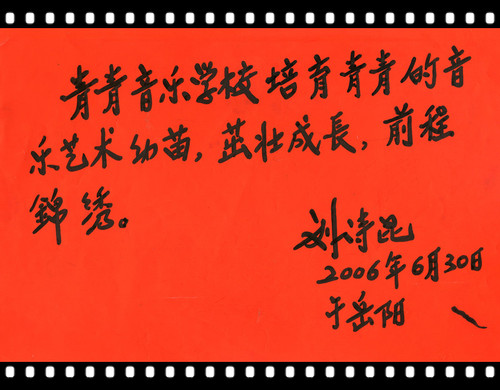 青青音乐学校培育青青的音
乐艺术幼苗，茁壮成長，前程
錦绣。
刘诗昆
2006年6月30日
于岳阳